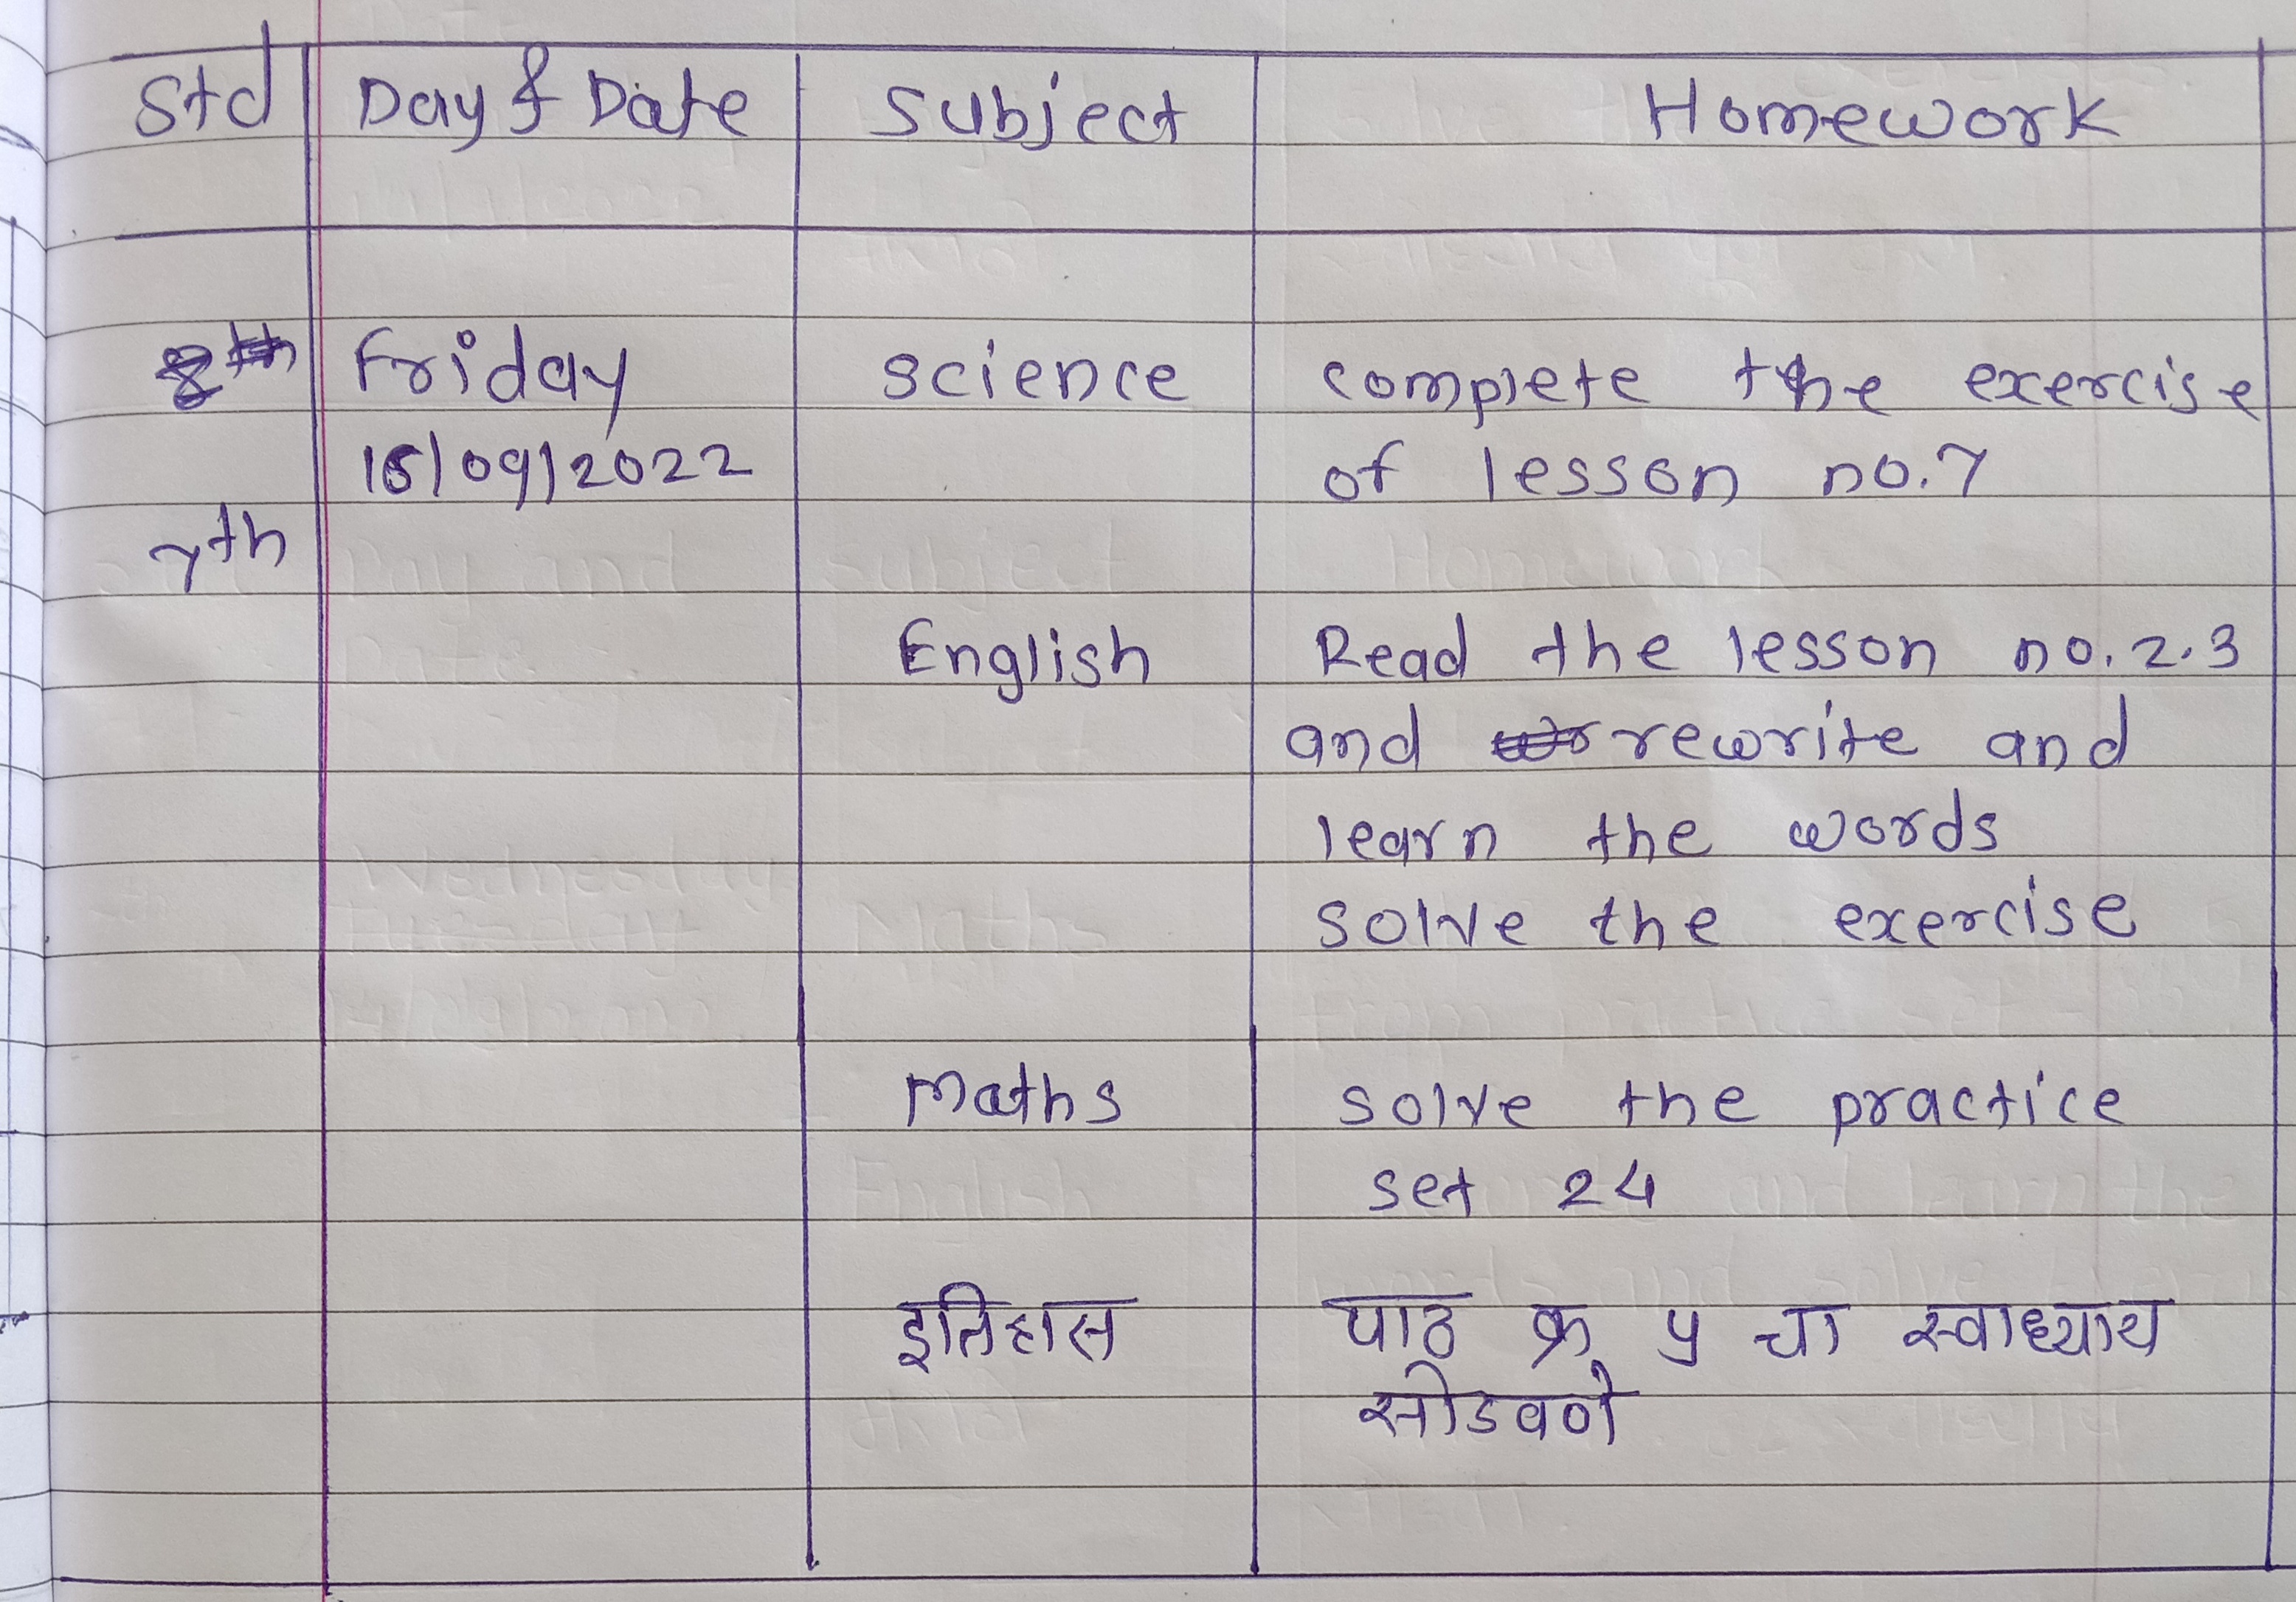 Std Day & Date Subject Homework
Friday Science complete the exercise
16/09/2022 of lesson no.7
7th
English Read the lesson no. 2.3
and rewrite and
learn the words
solve the exercise
Maths solve the practice
set 24
इतिहास पाठ क्र ५ चा स्वाध्याय
सोडवणे